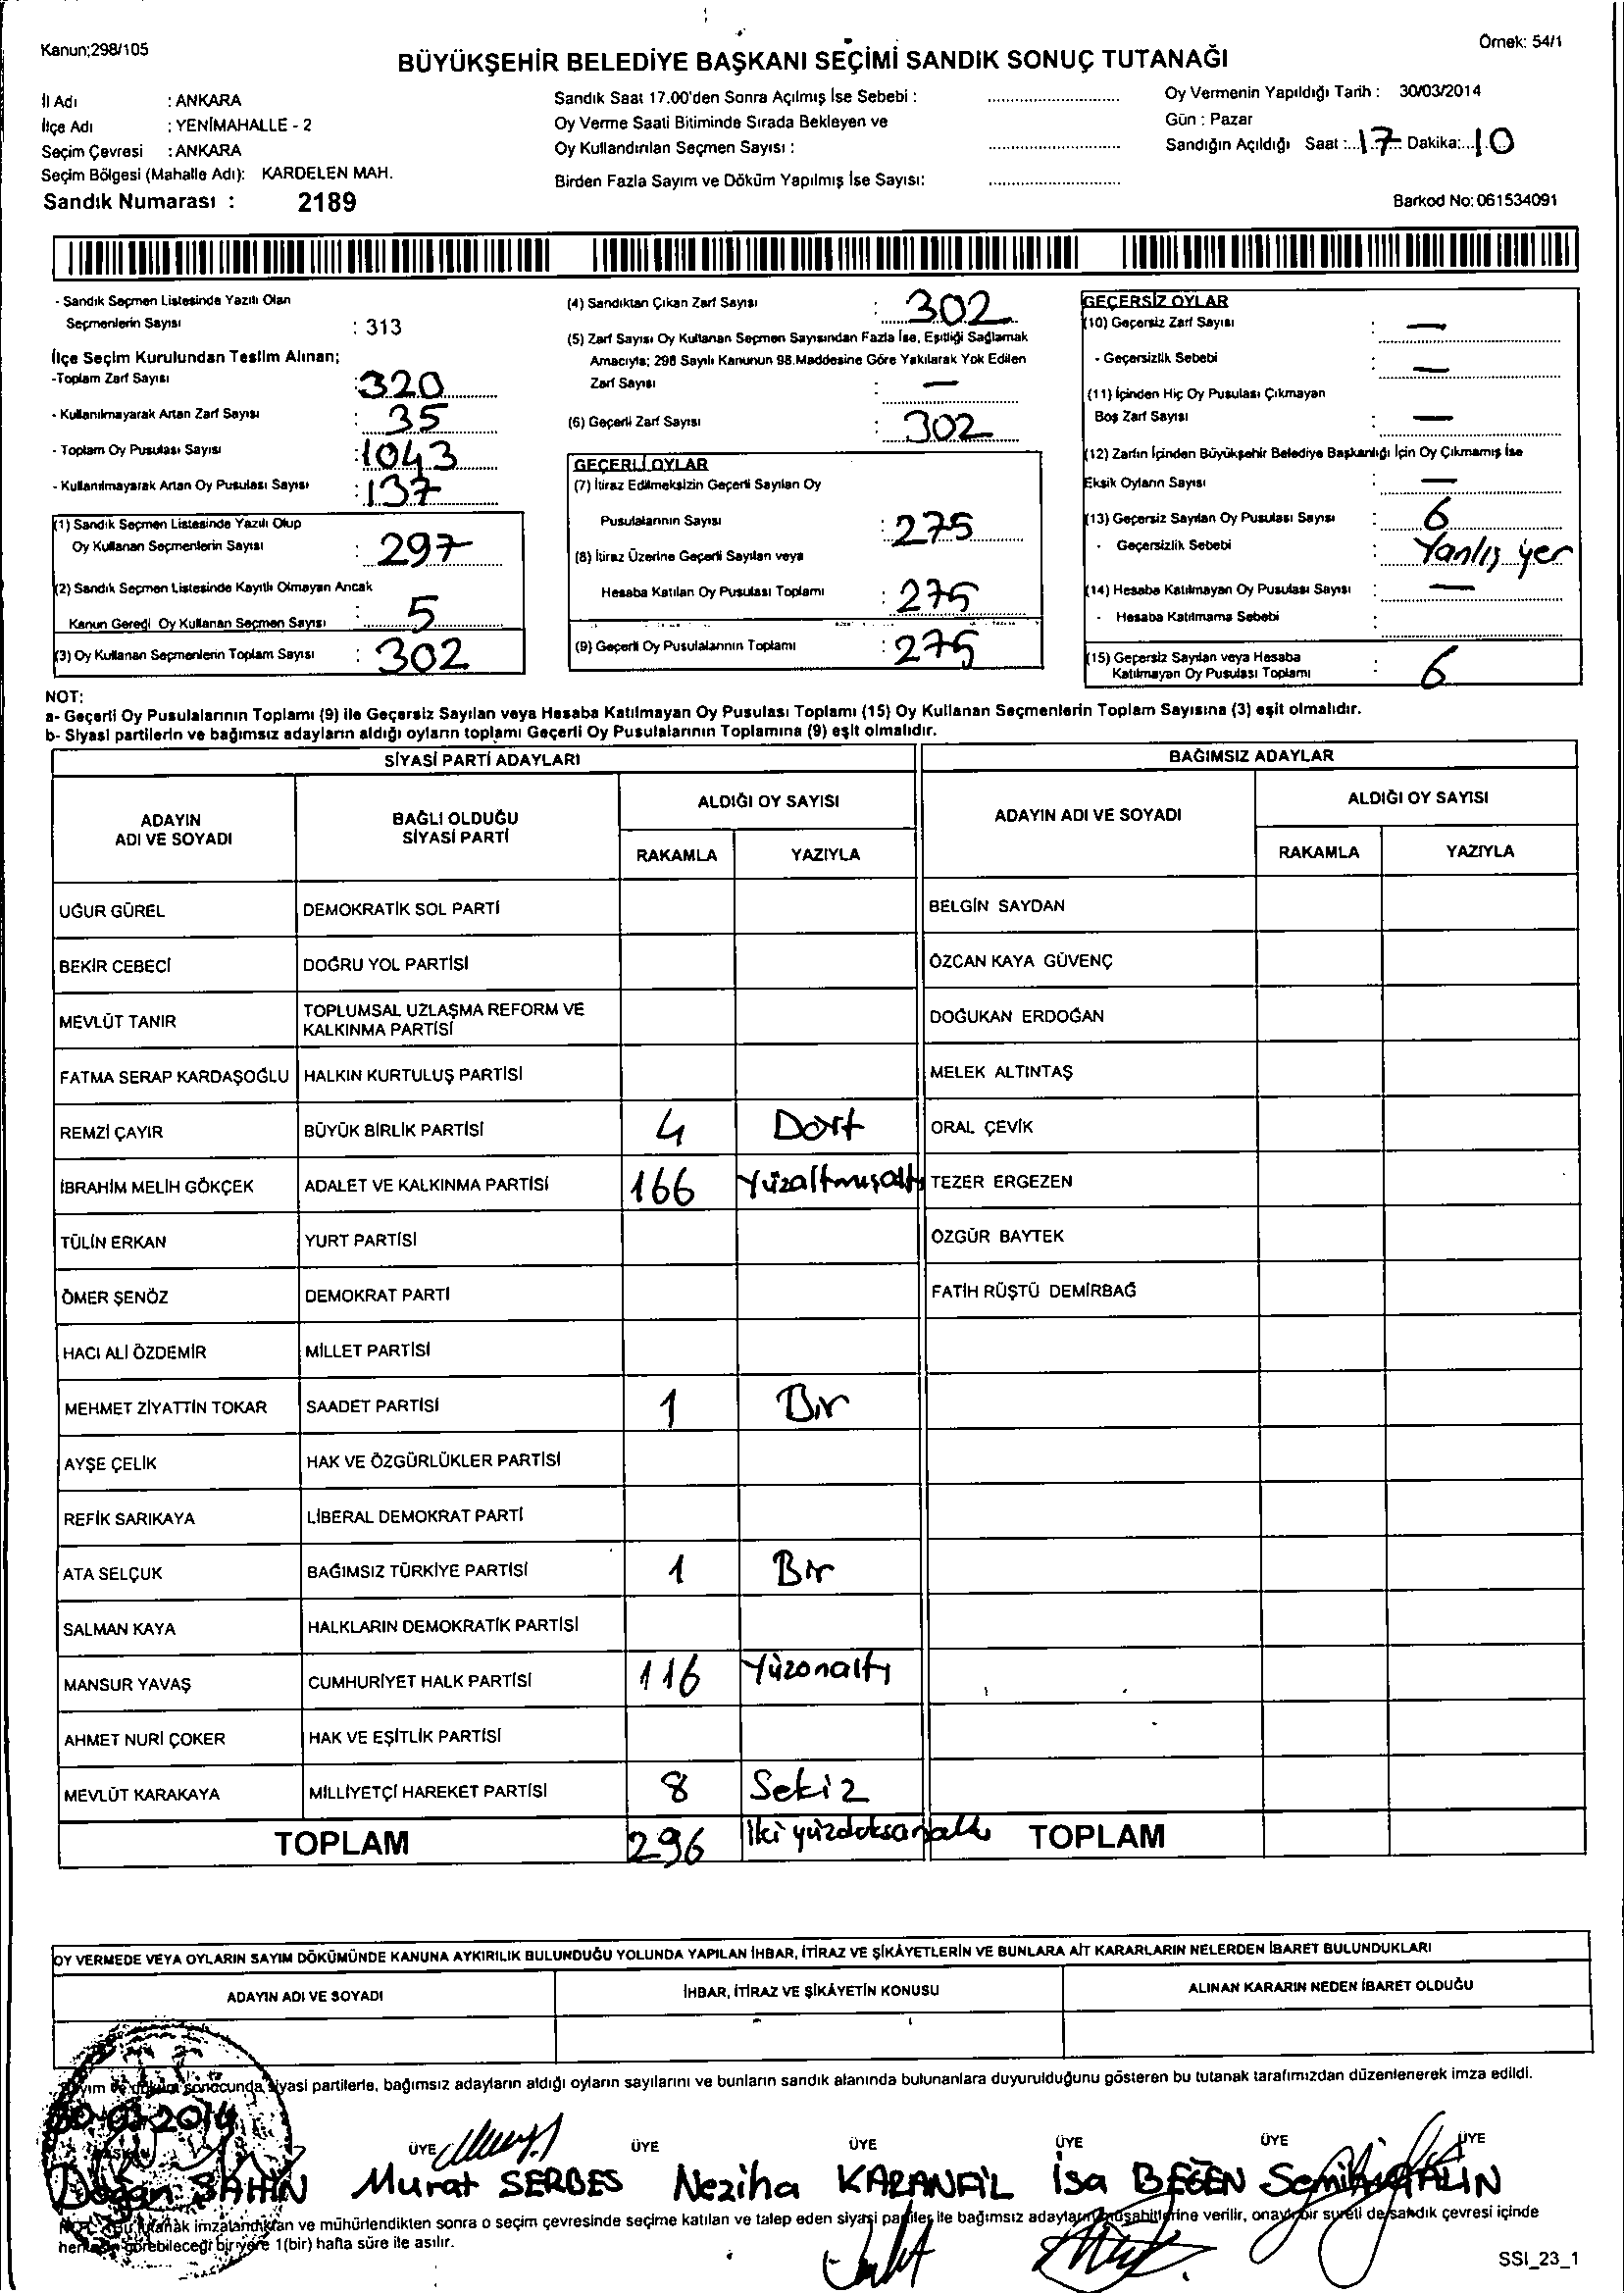 Kanun;298/105
Örnek: 54/1
BÜYÜKŞEHİR BELEDİYE BAŞKANI SEÇİMİ SANDIK SONUÇ TUTANAĞI
İl Adı : ANKARA
İlçe Adı : YENİMAHALLE - 2
Seçim Çevresi : ANKARA
Seçim Bölgesi (Mahalle Adı): KARDELEN MAH.
Sandık Numarası : 2189
Sandık Saat 17.00'den Sonra Açılmış İse Sebebi :
Oy Verme Saati Bitiminde Sırada Bekleyen ve
Oy Kullandırılan Seçmen Sayısı :
Birden Fazla Sayım ve Döküm Yapılmış İse Sayısı:
Oy Vermenin Yapıldığı Tarih : 30/03/2014
Gün : Pazar
Sandığın Açıldığı Saat : 17 Dakika: 10
Barkod No: 061534091
- Sandık Seçmen Listesinde Yazılı Olan
Seçmenlerin Sayısı : 313
İlçe Seçim Kurulundan Teslim Alınan;
-Toplam Zarf Sayısı : 320
- Kullanılmayarak Artan Zarf Sayısı : 35
- Toplam Oy Pusulası Sayısı : 1043
- Kullanılmayarak Artan Oy Pusulası Sayısı : 137
(1) Sandık Seçmen Listesinde Yazılı Olup
Oy Kullanan Seçmenlerin Sayısı : 297
(2) Sandık Seçmen Listesinde Kayıtlı Olmayan Ancak
Kanun Gereği Oy Kullanan Seçmen Sayısı : 5
(3) Oy Kullanan Seçmenlerin Toplam Sayısı : 302
(4) Sandıktan Çıkan Zarf Sayısı : 302
(5) Zarf Sayısı Oy Kullanan Seçmen Sayısından Fazla İse, Eşitliği Sağlamak
Amacıyla; 298 Sayılı Kanunun 98.Maddesine Göre Yakılarak Yok Edilen
Zarf Sayısı : —
(6) Geçerli Zarf Sayısı : 302
GEÇERLİ OYLAR
(7) İtiraz Edilmeksizin Geçerli Sayılan Oy
Pusulalarının Sayısı : 275
(8) İtiraz Üzerine Geçerli Sayılan veya
Hesaba Katılan Oy Pusulası Toplamı : 275
(9) Geçerli Oy Pusulalarının Toplamı : 275
GEÇERSİZ OYLAR
(10) Geçersiz Zarf Sayısı : —
- Geçersizlik Sebebi : —
(11) İçinden Hiç Oy Pusulası Çıkmayan
Boş Zarf Sayısı : —
(12) Zarfın İçinden Büyükşehir Belediye Başkanlığı İçin Oy Çıkmamış İse
Eksik Oyların Sayısı : —
(13) Geçersiz Sayılan Oy Pusulası Sayısı : 6
- Geçersizlik Sebebi : Yanlış yer
(14) Hesaba Katılmayan Oy Pusulası Sayısı : —
- Hesaba Katılmama Sebebi :
(15) Geçersiz Sayılan veya Hesaba
Katılmayan Oy Pusulası Toplamı : 6
NOT:
a- Geçerli Oy Pusulalarının Toplamı (9) ile Geçersiz Sayılan veya Hesaba Katılmayan Oy Pusulası Toplamı (15) Oy Kullanan Seçmenlerin Toplam Sayısına (3) eşit olmalıdır.
b- Siyasi partilerin ve bağımsız adayların aldığı oyların toplamı Geçerli Oy Pusulalarının Toplamına (9) eşit olmalıdır.
SİYASİ PARTİ ADAYLARI BAĞIMSIZ ADAYLAR
ADAYIN ADI VE SOYADI BAĞLI OLDUĞU SİYASİ PARTİ ALDIĞI OY SAYISI ADAYIN ADI VE SOYADI ALDIĞI OY SAYISI
RAKAMLA YAZIYLA RAKAMLA YAZIYLA
UĞUR GÜREL DEMOKRATİK SOL PARTİ BELGİN SAYDAN
BEKİR CEBECİ DOĞRU YOL PARTİSİ ÖZCAN KAYA GÜVENÇ
MEVLÜT TANIR TOPLUMSAL UZLAŞMA REFORM VE KALKINMA PARTİSİ DOĞUKAN ERDOĞAN
FATMA SERAP KARDAŞOĞLU HALKIN KURTULUŞ PARTİSİ MELEK ALTINTAŞ
REMZİ ÇAYIR BÜYÜK BİRLİK PARTİSİ 4 Dört ORAL ÇEVİK
İBRAHİM MELİH GÖKÇEK ADALET VE KALKINMA PARTİSİ 166 Yüzaltmışaltı TEZER ERGEZEN
TÜLİN ERKAN YURT PARTİSİ ÖZGÜR BAYTEK
ÖMER ŞENÖZ DEMOKRAT PARTİ FATİH RÜŞTÜ DEMİRBAĞ
HACI ALİ ÖZDEMİR MİLLET PARTİSİ
MEHMET ZİYATTİN TOKAR SAADET PARTİSİ 1 Bir
AYŞE ÇELİK HAK VE ÖZGÜRLÜKLER PARTİSİ
REFİK SARIKAYA LİBERAL DEMOKRAT PARTİ
ATA SELÇUK BAĞIMSIZ TÜRKİYE PARTİSİ 1 Bir
SALMAN KAYA HALKLARIN DEMOKRATİK PARTİSİ
MANSUR YAVAŞ CUMHURİYET HALK PARTİSİ 116 Yüzonaltı
AHMET NURİ ÇOKER HAK VE EŞİTLİK PARTİSİ
MEVLÜT KARAKAYA MİLLİYETÇİ HAREKET PARTİSİ 8 Sekiz
TOPLAM 296 İki yüzdoksanaltı TOPLAM
OY VERMEDE VEYA OYLARIN SAYIM DÖKÜMÜNDE KANUNA AYKIRILIK BULUNDUĞU YOLUNDA YAPILAN İHBAR, İTİRAZ VE ŞİKÂYETLERİN VE BUNLARA AİT KARARLARIN NELERDEN İBARET BULUNDUKLARI
ADAYIN ADI VE SOYADI İHBAR, İTİRAZ VE ŞİKÂYETİN KONUSU ALINAN KARARIN NEDEN İBARET OLDUĞU
Sayım ve döküm sonucunda siyasi partilerle, bağımsız adayların aldığı oyların sayılarını ve bunların sandık alanında bulunanlara duyurulduğunu gösteren bu tutanak tarafımızdan düzenlenerek imza edildi.
30-03-2014
ÜYE ÜYE ÜYE ÜYE ÜYE ÜYE
Doğan ŞAHİN Murat SERBES Neziha KARANFİL İsa BEĞEN Semih
NOT: Bu tutanak imzalandıktan ve mühürlendikten sonra o seçim çevresinde seçime katılan ve talep eden siyasi partiler ile bağımsız adayların müşahitlerine verilir, onaylı bir sureti de sandık çevresi içinde
herkesin görebileceği bir yere 1(bir) hafta süre ile asılır.
SSI_23_1